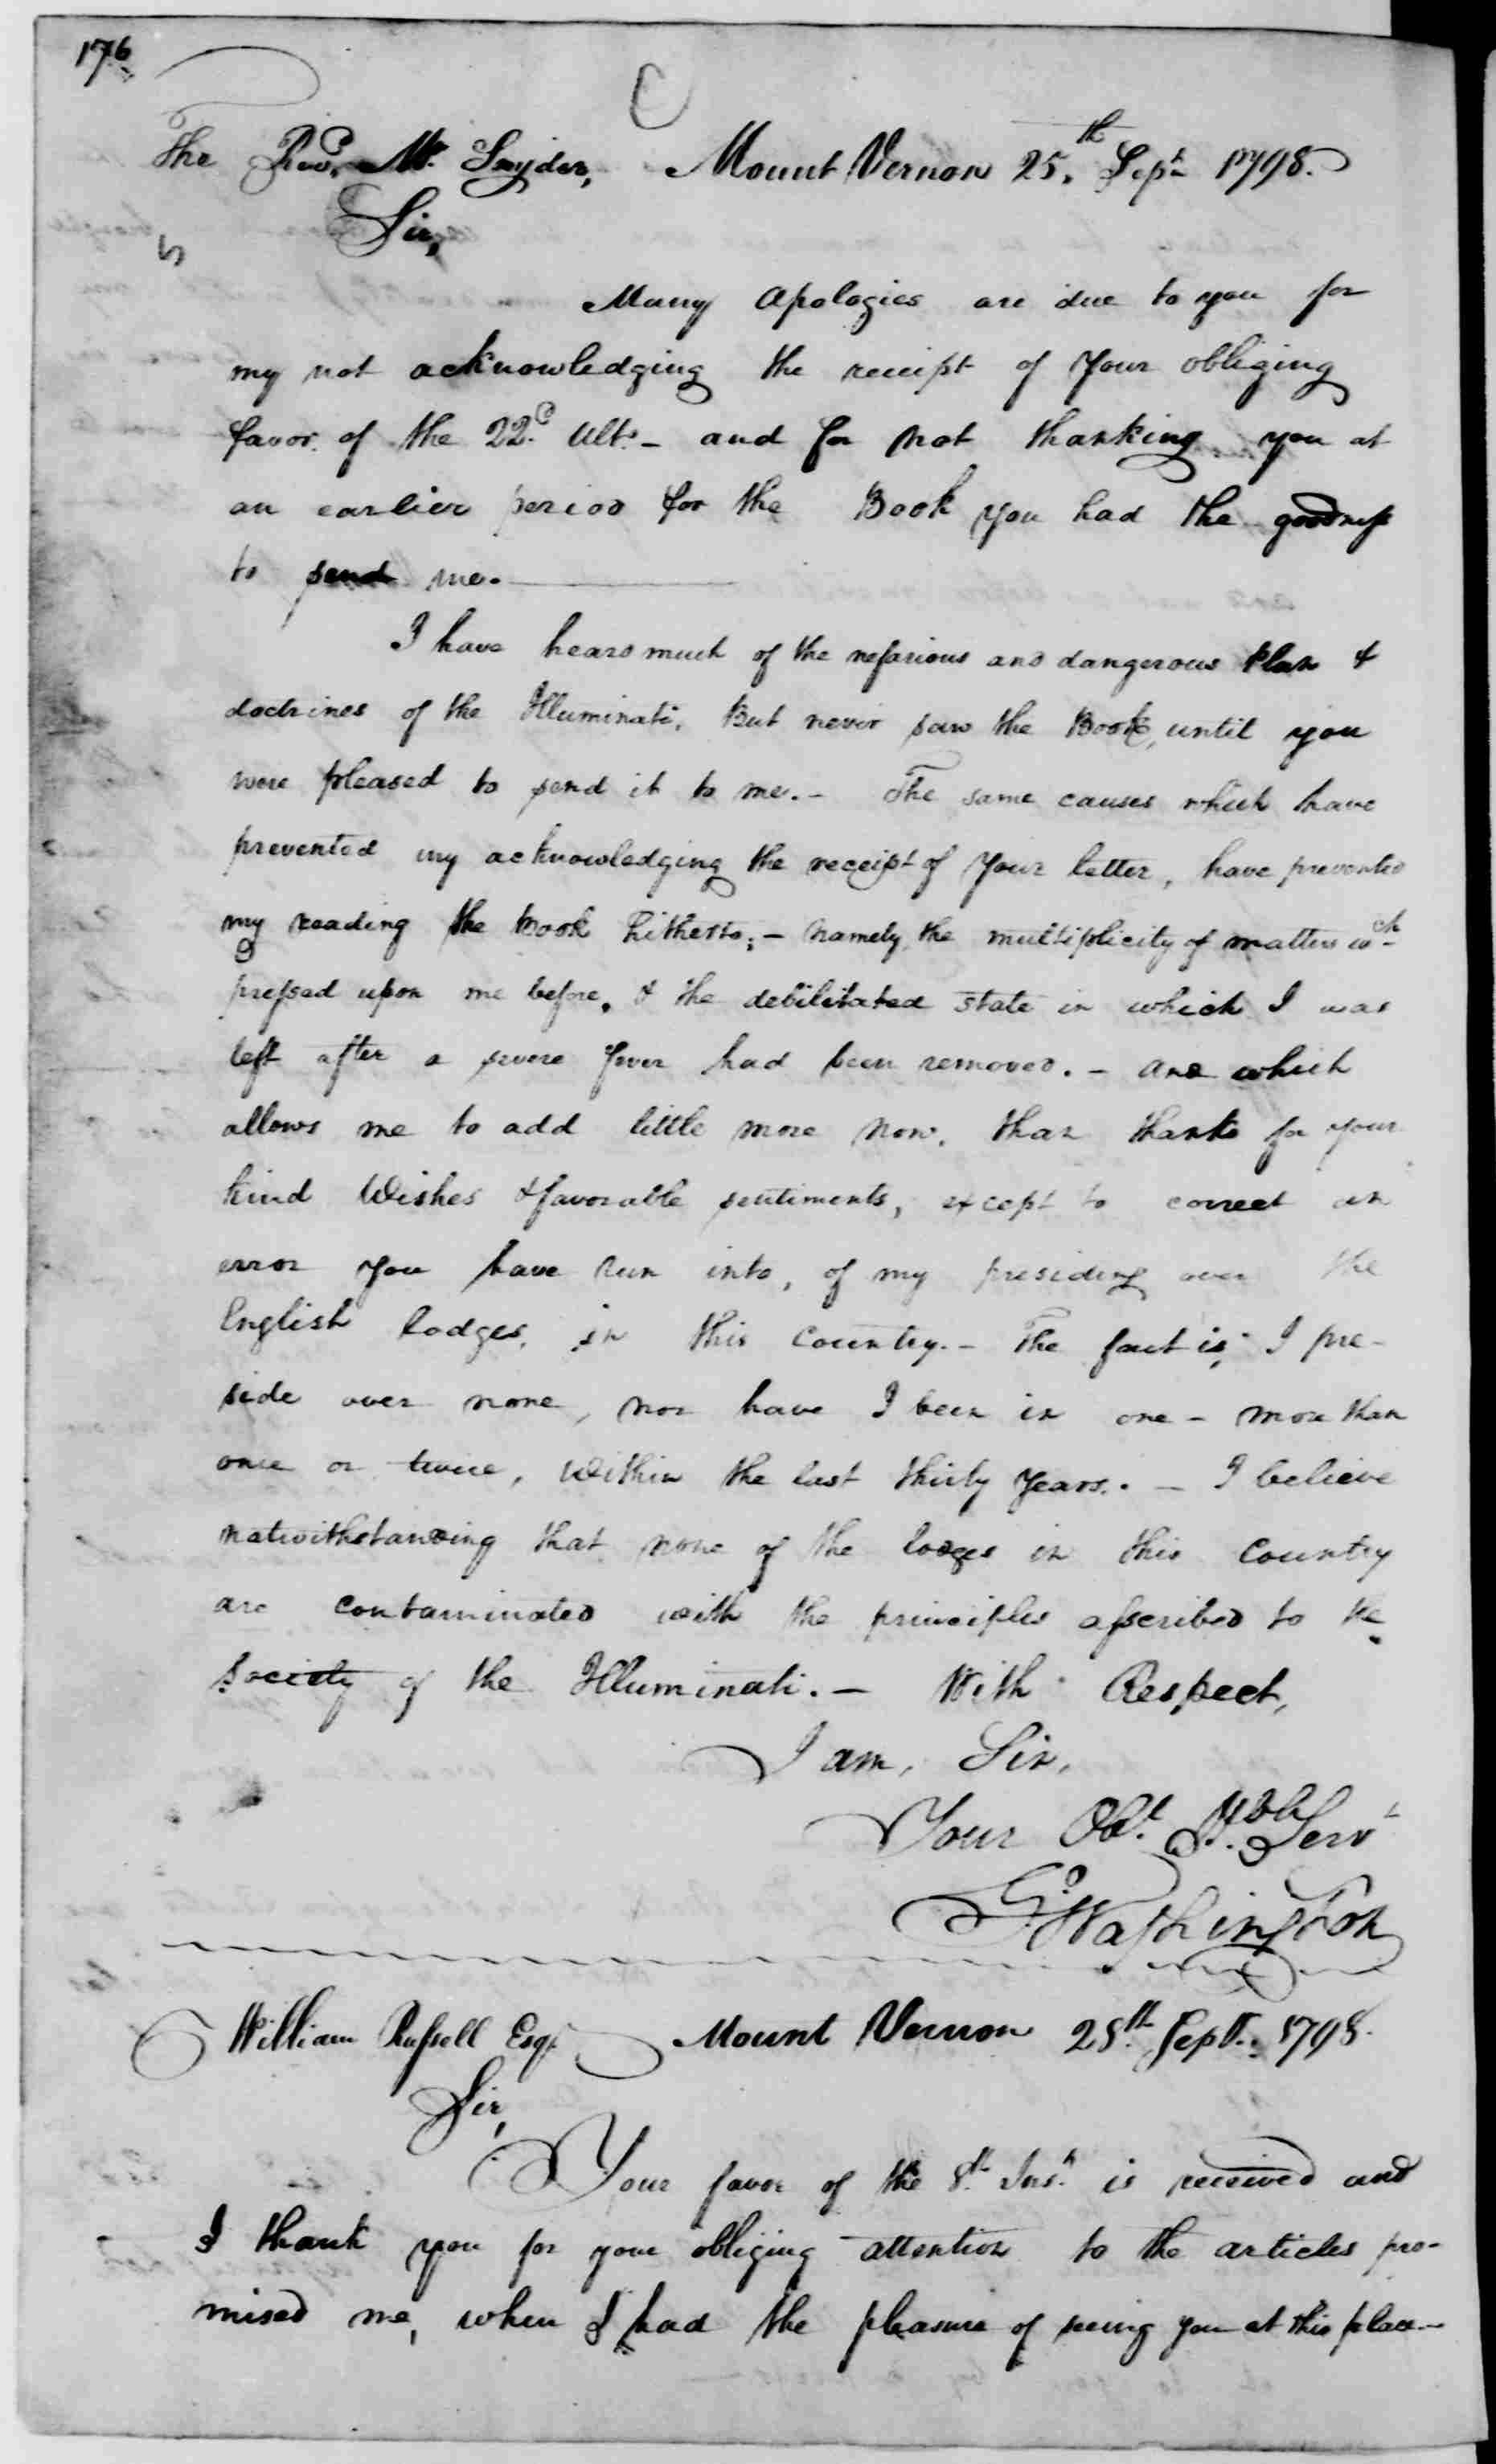 176
The Revd. Mr. Snyder, Mount Vernon 25.th Sept. 1798.
Sir,
Many Apologies are due to you for
my not acknowledging the receipt of Your obliging
favor. of the 22d. Ulto. – and for not thanking you at
an earlier period for the Book you had the goodness
to send me. —
I have heard much of the nefarious and dangerous plan &
doctrines of the Illuminati, But never saw the Book, until you
were pleased to send it to me. – The same causes which have
prevented my acknowledging the receipt of Your letter, have prevented
my reading the Book hitherto; – namely, the multiplicity of matters wch
pressed upon me before, & the debilitated state in which I was
left after a severe fever had been removed. – And which
allows me to add little more now, than thanks for your
kind Wishes & favorable sentiments, except to correct an
error you have run into, of my presiding over the
English lodges, in this Country. – The fact is, I pre-
side over none, nor have I been in one – more than
once or twice, within the last thirty Years. – I believe
notwithstanding that none of the lodges in this Country
are contaminated with the principles ascribed to the
Society of the Illuminati. – With Respect,
I am, Sir,
Your Obt. Hble Servt
Go. Washington
William Russell Esqr. Mount Vernon 28th. Sept. 1798.
Sir,
Your favor of the 8th. Inst. is received and
I thank you for your obliging attention to the articles pro-
mised me, when I had the pleasure of seeing you at this place –